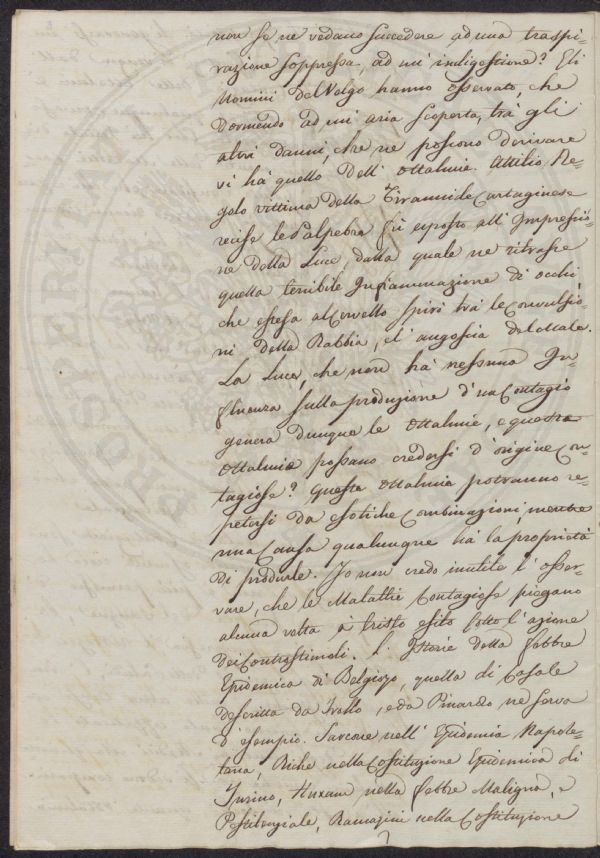 non se ne vedano succedere ad una traspi-
razione soppressa, ad un' indigestione? Gli
Uomini del Volgo hanno osservato, che
dormendo ad un' aria scoperta, trà gli
altri danni, che ne possono derivare
vi hà quello dell' Ottalmie. Attilio Re-
golo vittima della Tirannide Cartaginese
recise le Palpebre fù esposto all' Impressio-
ne della Luce, dalla quale ne ritrasse
quella terribile Infiammazione di occhi
che estesa al Cervello spirò trà le Convulsio-
ni della Rabbia, e l' angoscia del Male.
La Luce, che non hà nessuna In-
fluenza sulla produzione d' un Contagio
genera dunque le Ottalmie, e queste
Ottalmie possono credersi d' origine Con-
tagiose? Queste Ottalmie potranno re-
petersi da esotiche Combinazioni, mentre
una Causa qualunque hà la proprietà
di produrle. Io non credo inutile l' osser-
vare, che le Malattie Contagiose piegano
alcuna volta à tristo esito sotto l' azione
dei Controstimoli. L' Istorie della Febbre
Epidemica di Belgiojo, quella di Casale
descritta da Trollo, e da Pinardo ne serva
d' esempio. Sarcone nell' Epidemia Napole-
tana, Riche nella Costituzione Epidemica di
Torino, Huxam nella Febbre Maligna, e
Pestilenziale, Ramazini nella Costituzione